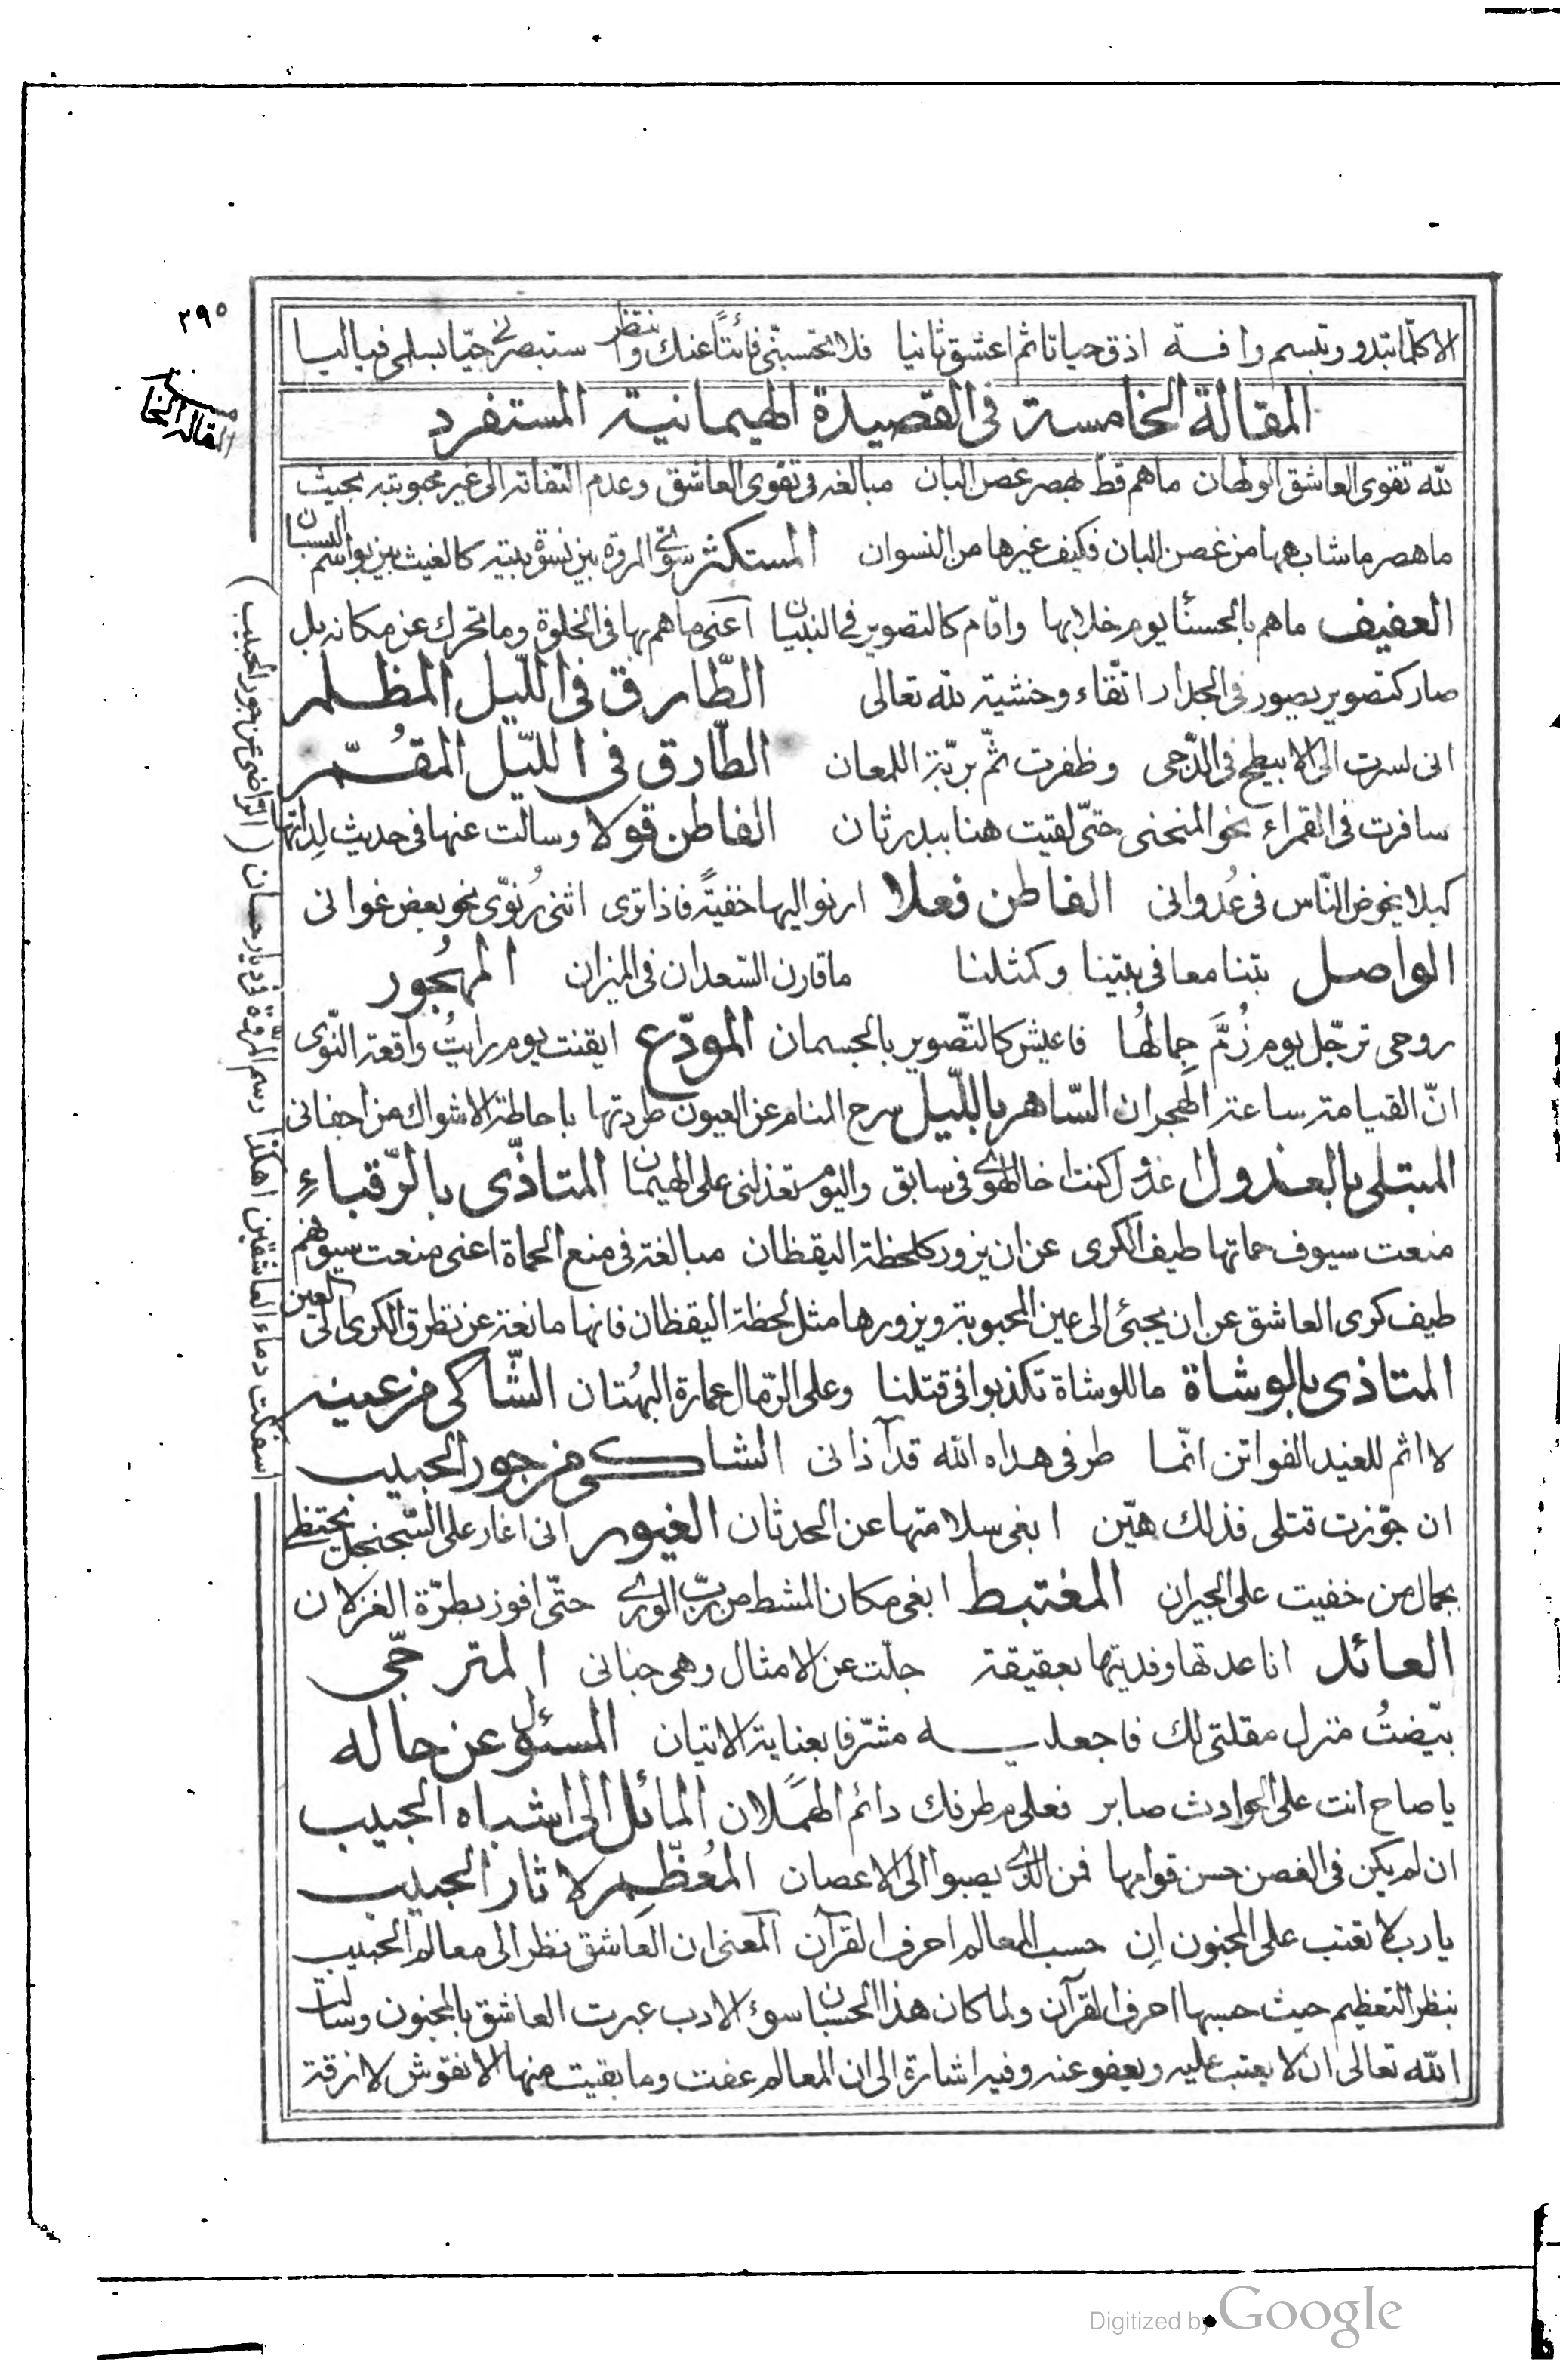 ٢٩٥
المقالة الخامسة
الا كلّما تبدو وتبسم رافة اذق حياتا ثم اعشق ثانيا فلا تحسبنّى فائتًا عنك وانتظر ستبصرنى حيّا بسلمى فياليا
المقالة الخامسة فى القصيدة الهيمانية المستفرد
لله تقوى العاشق الولهان ما هم قطّ بهصر غصن البان مبالغة فى تقوى العاشق وعدم التفاته الى غير محبوبته بحيث
ما هصر ما شابهها من غصن البان فكيف غيرها من النسوان المستكثر سوّى المروة بين نسوة بيته كالغيث بين بواسم البستان
العفيف ما هم بالحسنا يوم خلا بها واقام كالتصوير فى البنيان اعنى ما هم بها فى الخلوة وما تحرك عن مكانه بل
صار كتصوير يصور فى الجدار اتّقاء وخشية لله تعالى الطّارق فى اللّيل المظلم
انى لسرت الى الابيطح فى الدّجى وظفرت ثمّ بربّة اللمعان الطّارق فى اللّيل المقمّر
سافرت فى القمراء نحو المنحنى حتّى لقيت هنا ببدر ثان الفاطن قولا وسالت عنها فى حديث لداتها
كيلا يخوض النّاس فى عُدوانى الفاطن فعلا ارنو اليها خفيةً فاذا ترى اثنى رُنوّى نحو بعض غوانى
الواصل بتنا معا فى بيتنا وكمثلنا ما قارن السّعدان فى الميزان المهجور
روحى ترحّل يوم زُمَّ جِمالُها فاعيش كالتّصوير بالجسمان المودّع ايقنت يوم رايتُ واقعة النّوى
انّ القيامة ساعة الهجران السّاهر باللّيل سرح المنام عن العيون طردتها باحاطة الاشواك من اجفانى
المبتلى بالعذول عذول كنت اخا الهوى فى سابق واليوم تعذلنى على الهيمان المتاذّى بالرّقباءِ
منعت سيوف حماتها طيف الكرى عن ان يزور كلحظة اليقظان مبالغة فى منع الحماة اعنى منعت سيوفهم
طيف كرى العاشق عن ان يجئى الى عين المحبوبة ويزورها مثل لحظة اليقظان فانها مانعة عن تطرق الكرى الى العين
المتاذى بالوشاة ما للوشاة تكذبوا فى قتلنا وعلى الرّمال عمارة البهتان الشّاكى من عينه
لا اثم للغيد الفواتن انّما طرفى هداه الله قد آذانى الشاكى من جور الحبيب
ان جوّزت قتلى فذلك هيّن ابغى سلامتها عن الحدثان الغيور انى اغار على السّجنجل يحتظ
بجمال من خفيت على الجيران المغتبط ابغى مكان المشط من ربّ الورى حتّى افوز بطرّة الغزلان
العائد انا عدتها وفديتها بعقيقة جلّت عن الامثال وهى جنانى المترجّى
بيّضتُ منزل مقلتى لك فاجعليه مشرّفا بعناية الاتيان المسئول عن حاله
يا صاح انت على الحوادث صابر فعلى م طرفك دائم الهملان المائل الى اشباه الحبيب
ان لم يكن فى الغصن حسن قوامها فمن الذى يصبو الى الاغصان المُعظِّم لاثار الحبيب
يا رب لا تعتب على المجنون اِن حسب المعالم احرف القرآن المعنى ان العاشق نظر الى معالم الحبيب
بنظر التعظيم حيث حسبها احرف القرآن ولما كان هذا الحسبان سوء الادب عبرت العاشق بالمجنون وسالت
الله تعالى ان لا يعتب عليه ويعفو عنه وفيه اشارة الى ان المعالم عفت وما بقيت منها الا نقوش لازقة
(الرّاضى عن جور الحبيب)
اسفكت دماء العاشقين اهكذا رسم المروّة فى ديار حسان
Digitized by Google